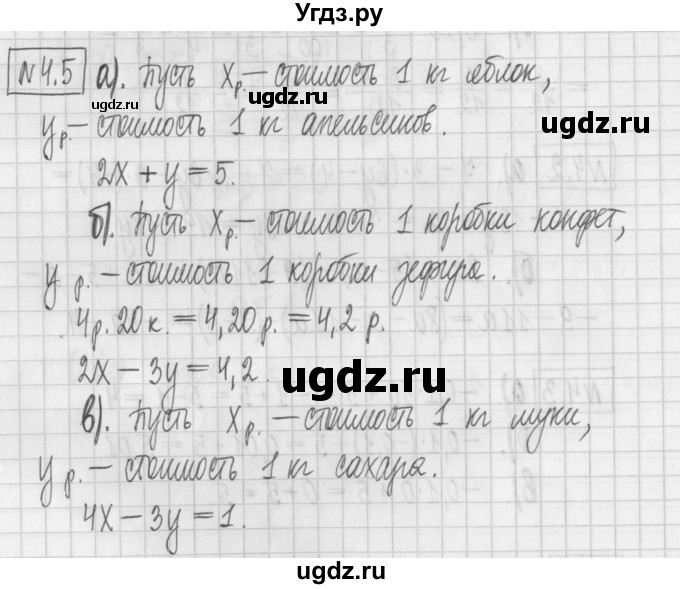 Угдз.ру
№4.5 а). Пусть x р. – стоимость 1 кг яблок,
ugdz.ru
ugdz.ru
y р. – стоимость 1 кг апельсинов.
2x + y = 5.
б). Пусть x р. – стоимость 1 коробки конфет,
y р. – стоимость 1 коробки зефира.
4 р. 20 к. = 4,20 р. = 4,2 р.
2x – 3y = 4,2.
ugdz.ru
в). Пусть x р. – стоимость 1 кг муки,
y р. – стоимость 1 кг сахара.
4x – 3y = 1.
ugdz.ru
ugdz.ru